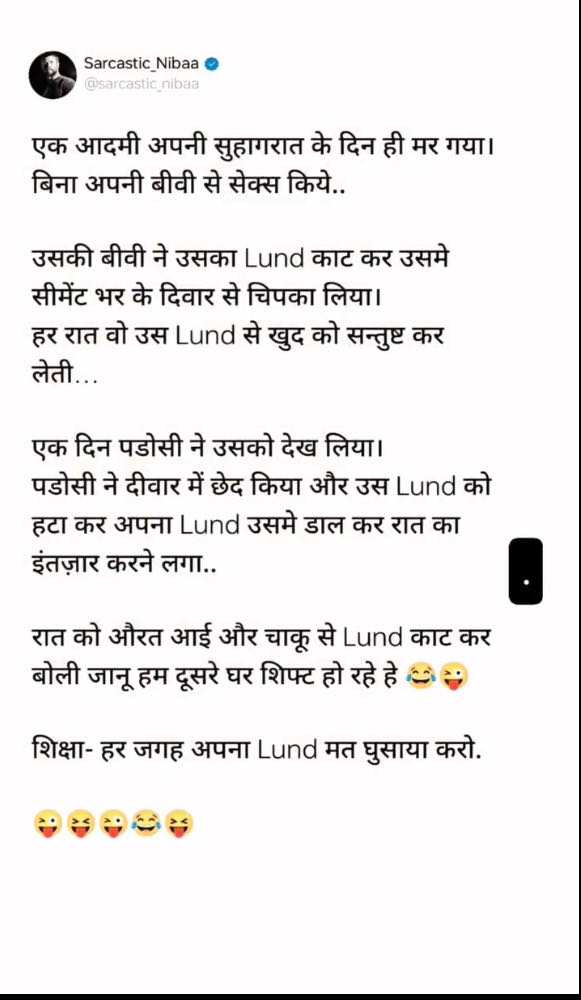 Sarcastic_Nibaa
@sarcastic_nibaa
एक आदमी अपनी सुहागरात के दिन ही मर गया।
बिना अपनी बीवी से सेक्स किये..
उसकी बीवी ने उसका Lund काट कर उसमे
सीमेंट भर के दिवार से चिपका लिया।
हर रात वो उस Lund से खुद को सन्तुष्ट कर
लेती...
एक दिन पडोसी ने उसको देख लिया।
पडोसी ने दीवार में छेद किया और उस Lund को
हटा कर अपना Lund उसमे डाल कर रात का
इंतज़ार करने लगा..
रात को औरत आई और चाकू से Lund काट कर
बोली जानू हम दूसरे घर शिफ्ट हो रहे हे 😂😜
शिक्षा- हर जगह अपना Lund मत घुसाया करो.
😜😝😜😂😝